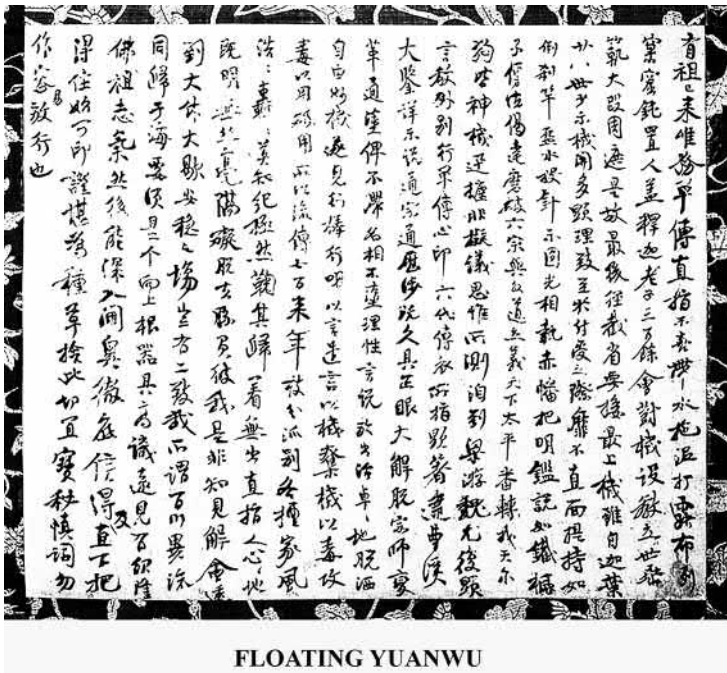 有祖已來唯務單傳直指不喜帶水拖泥打露布列
窠窟鈍置人蓋釋迦老子三百餘會對機設教立世垂
範大段周遮是故最後徑截省要接最上機雖自迦葉
廿八世少示機關多顯理致至於付受之際靡不直面提持如
倒刹竿盋水投針示圓光相執赤幡把明鑑說如鐵橛
子傳法偈達磨破六宗與外道立義天下太平番轉我天尔
狗皆神機迅捷非擬議思惟所測洎到梁游魏尤復顯
言教外別行單傳心印六代傳衣所指顯著逮曹溪
大鑒詳示說通宗通歷涉既久具正眼大解脫宗師變
革通塗俾不滯名相不墮理性言說放出活卓〻地脫洒
自由妙機遂見行棒行喝以言遣言以機奪機以毒攻
毒以用破用所以流傳七百來年枝分派別各擅家風
浩〻轟〻莫知紀極然鞠其歸著無出直指人心〻地
既明無絲毫隔礙脫去勝負彼我是非知見解會透
到大休大歇安穩之場豈有二致哉所謂百川異流
同歸于海要須是个向上根器具高識遠見有紹隆
佛祖志氣然後能深入閫奧徹底信得及直下把
得住始可印證堪為種草捨此切宜寶秘慎詞勿
作容易放行也
FLOATING YUANWU